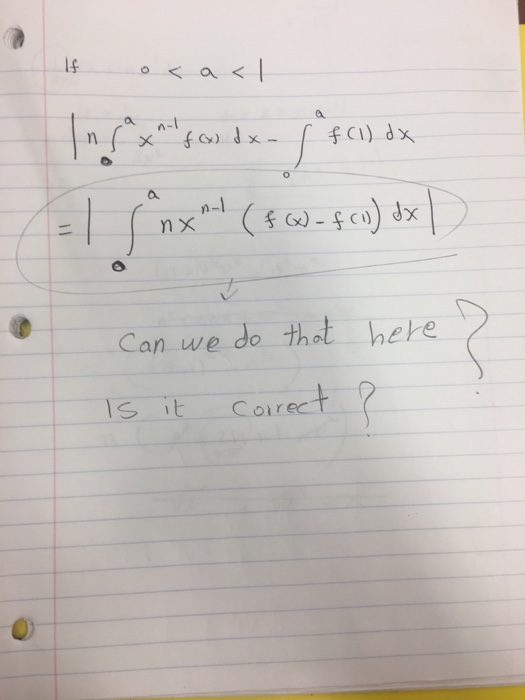 If 0 < a < 1
| n ∫₀ᵃ xⁿ⁻¹ f(x) dx - ∫₀ᵃ f(1) dx
= | ∫₀ᵃ nxⁿ⁻¹ (f(x) - f(1)) dx |
Can we do that here ?
Is it correct ?